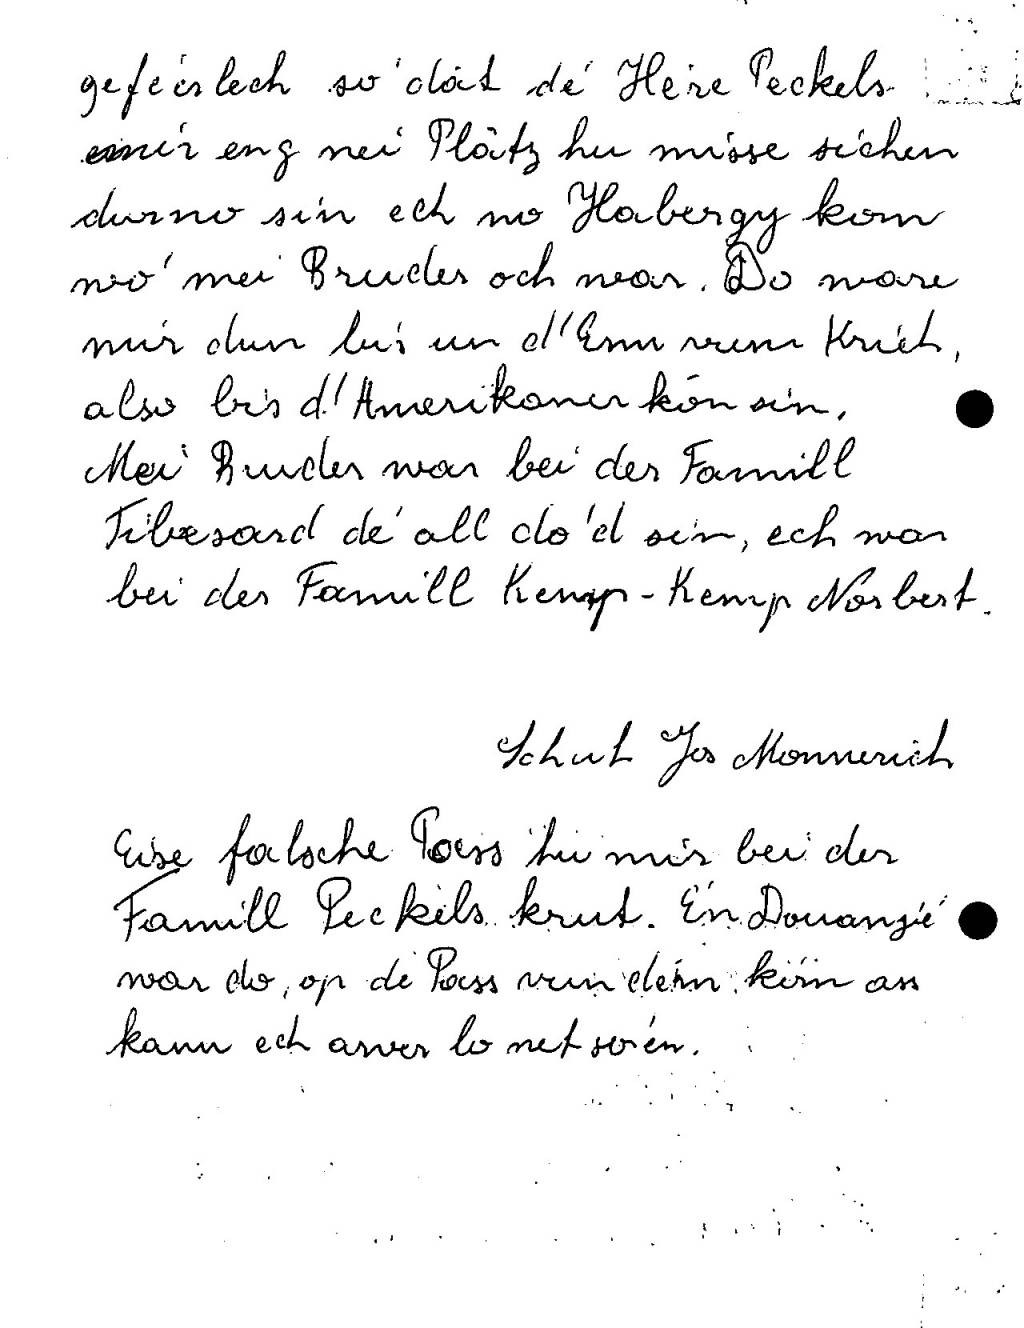 geféerlech so' dât dé Hére Peckels
mir eng nei Plâtz hu misse sichen
durno sin ech no Habergy kom
wo' mei Bruder och war. Do ware
mir dun bis un d'Enn vum Krich,
also bis d'Amerikaner kôm sin.
Mei Bruder war bei der Famill
Tibesard dé all do'd sin, ech war
bei der Famill Kemp-Kemp Norbert.
Schut Jos Monnerich
Eise falsche Pass hu mir bei der
Famill Peckels krut. En Douanjé
war do, op dé Pass vun dém kôm ass
kann ech awer lo net soén.